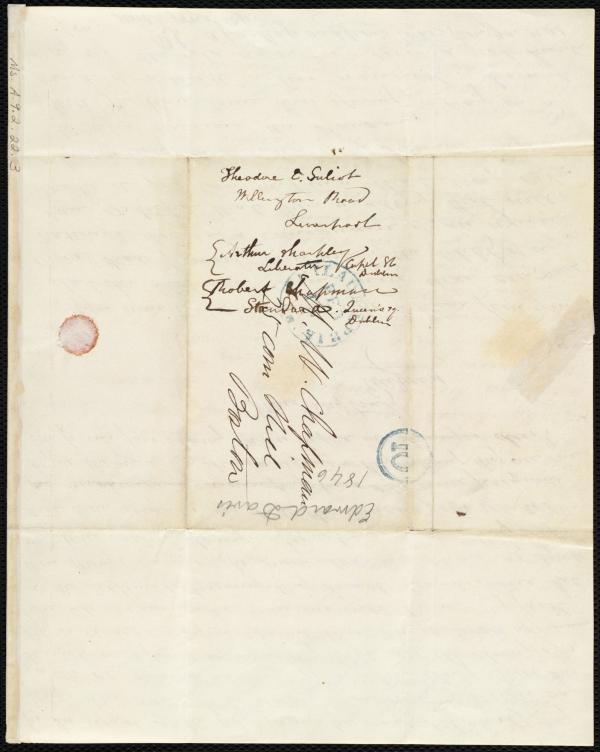 Ms. A.9.2.22.3
Theodore E. Suliot
Wellington Road
Liverpool
Arthur Sharpley
Liberator
Capel St
Dublin
Robert Chapman
Standard.
Queen's sq.
Dublin
W. Chapman
Boston
10
1846
Edward Davis